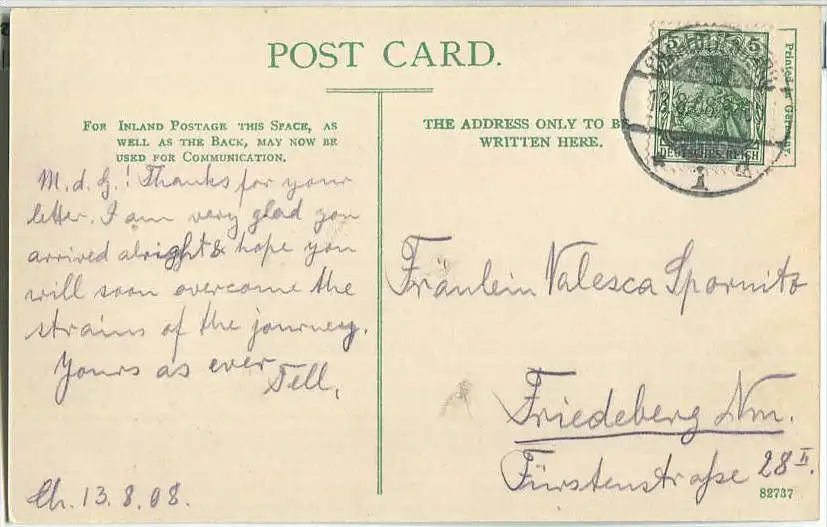 POST CARD.
FOR INLAND POSTAGE THIS SPACE, AS
WELL AS THE BACK, MAY NOW BE
USED FOR COMMUNICATION.
THE ADDRESS ONLY TO BE
WRITTEN HERE.
Printed in Germany.
5 5
DEUTSCHES REICH
13.8.08
1 d
M. d. G.! Thanks for your
letter. I am very glad you
arrived alright & hope you
will soon overcome the
strains of the journey.
Yours as ever
Tell.
Ch. 13.8.08.
Fräulein Valesca Spornitz
Friedeberg Nm.
Fürstenstraße 28 II.
82737